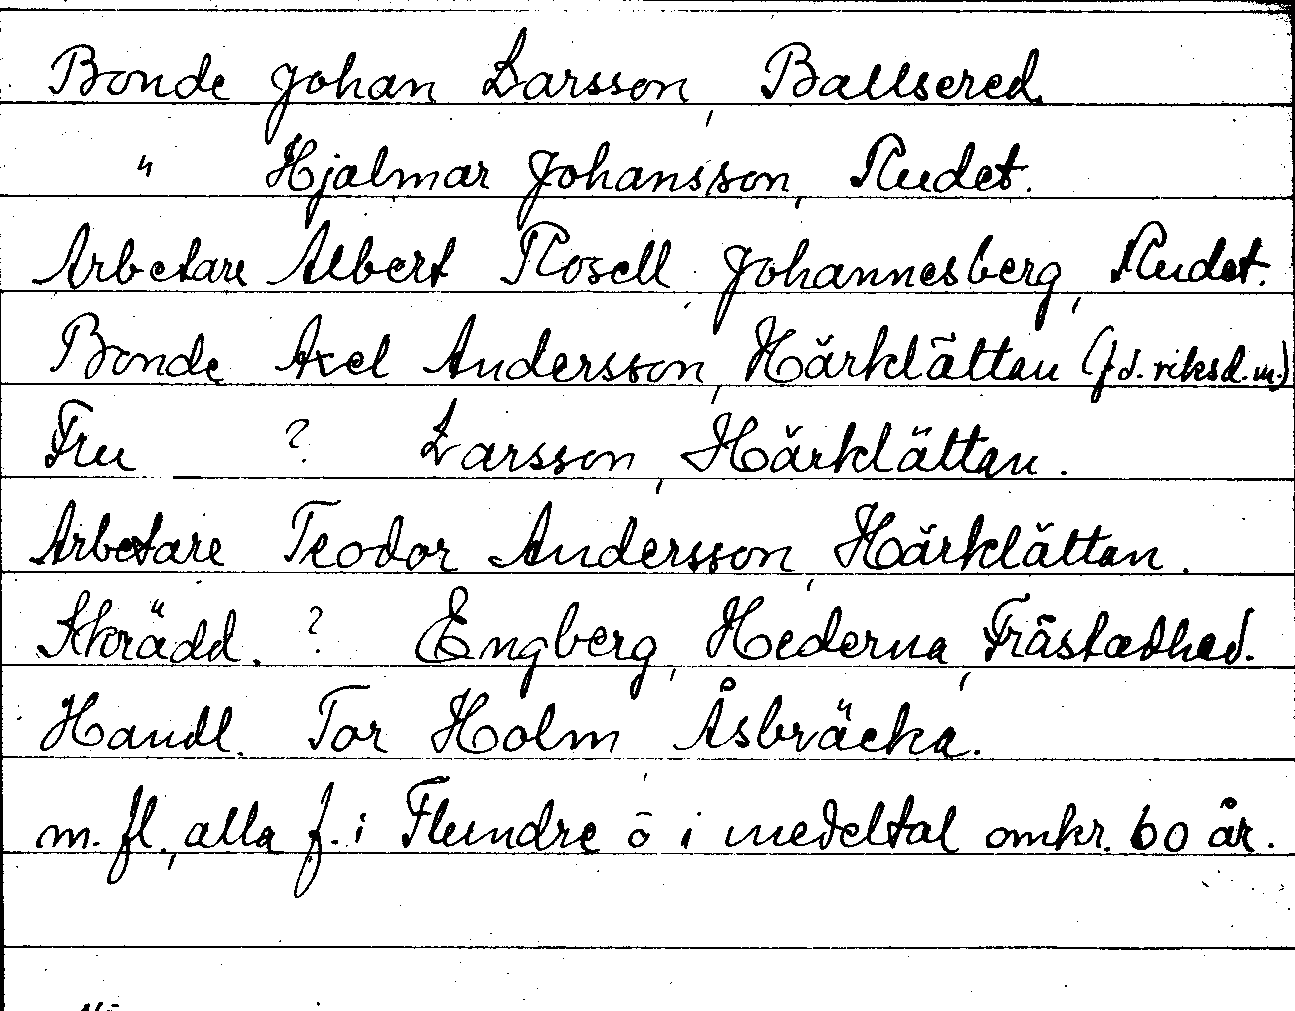 Bonde Johan Larsson, Ballsered.
" Hjalmar Johansson, Rudet.
Arbetare Albert Rosell Johannesberg, Rudet.
Bonde Axel Andersson, Härklättau (f.d. riksd.m.)
Fru ? Larsson, Härklättau.
Arbetare Teodor Andersson, Härklättan.
Skrädd. ? Engberg, Hederna, Fråstadhed.
Handl. Tor Holm Åsbräcka.
m. fl., alla f. i Flundre o i medeltal omkr. 60 år.